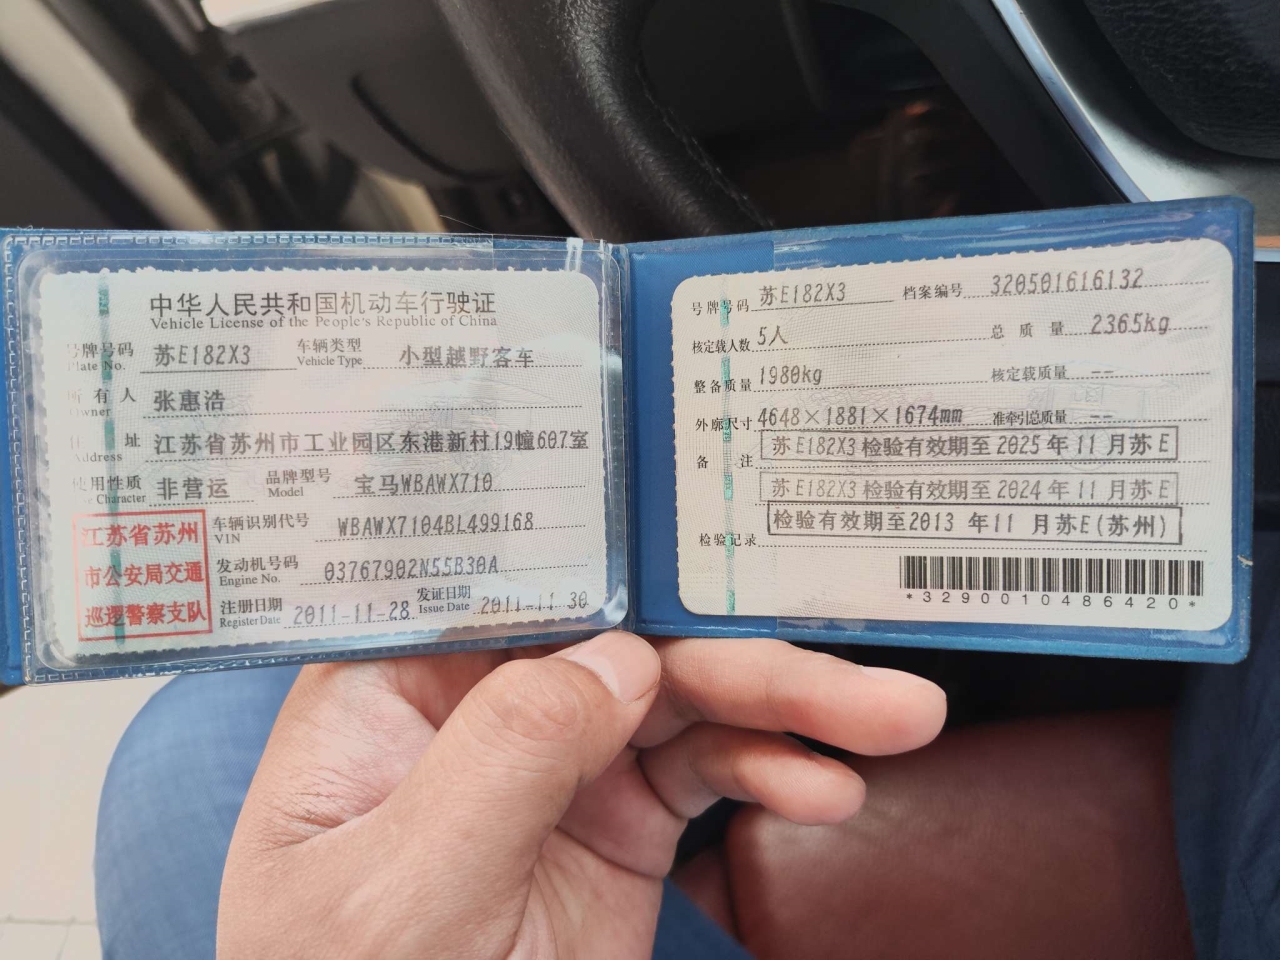 中华人民共和国机动车行驶证
Vehicle License of the People's Republic of China
号牌号码 苏E182X3 车辆类型 小型越野客车
Plate No. Vehicle Type
所有人 张惠浩
Owner
住址 江苏省苏州市工业园区东港新村19幢607室
Address
使用性质 非营运 品牌型号 宝马WBAWX710
Character Model
江苏省苏州
市公安局交通
巡逻警察支队
车辆识别代号 WBAWX7104BL499168
VIN
发动机号码 03767902N55B30A
Engine No.
注册日期 2011-11-28 发证日期 2011-11-30
Register Date Issue Date
号牌号码 苏E182X3 档案编号 320501616132
核定载人数 5人 总质量 2365kg
整备质量 1980kg 核定载质量 --
外廓尺寸 4648×1881×1674mm 准牵引总质量 --
备注 苏E182X3检验有效期至2025年11月苏E
苏E182X3检验有效期至2024年11月苏E
检验有效期至2013 年11 月苏E(苏州)
检验记录
*3290010486420*